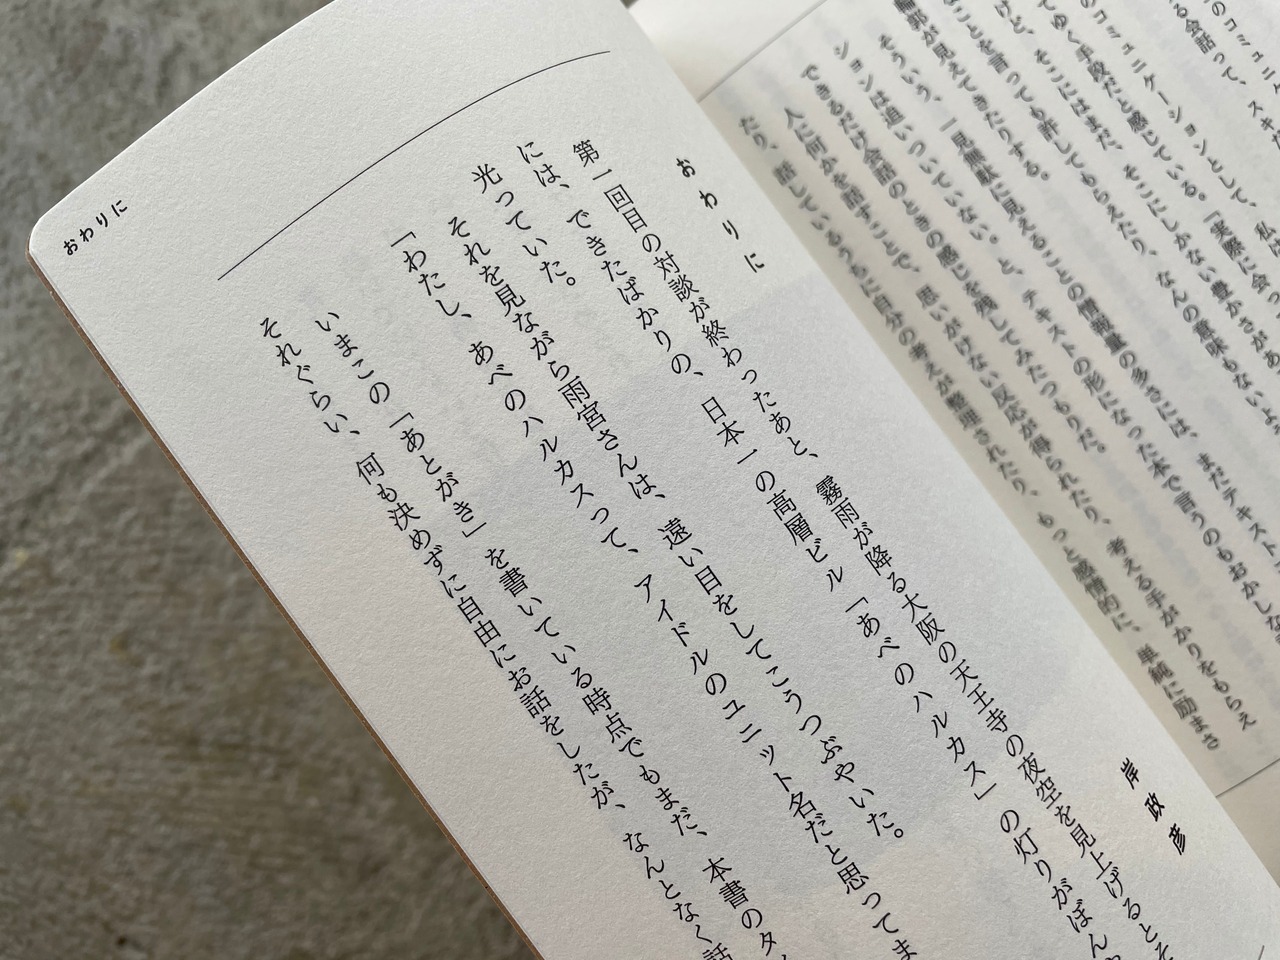 のコミュニケ
る会話って、スキ
のコミュニケーションとして、私は
てゆく手段だと感じている。「実際に会っ
けど、そこにはまだ、そこにしかない豊かさがあ
なことを言っても許してもらえたり、なんの意味もないよ
輪郭が見えてきたりする。
そういう、一見無駄に見えることの情報量の多さには、まだテキスト
ションは追いついていない。と、テキストの形になった本で言うのもおかしな
できるだけ会話のときの感じを残してみたつもりだ。
人に何かを話すことで、思いがけない反応が得られたり、考える手がかりをもらえ
たり、話しているうちに自分の考えが整理されたり、もっと感情的に、単純に励まさ
おわりに
岸政彦
第一回目の対談が終わったあと、霧雨が降る大阪の天王寺の夜空を見上げるとそ
には、できたばかりの、日本一の高層ビル「あべのハルカス」の灯りがぼん
光っていた。
それを見ながら雨宮さんは、遠い目をしてこうつぶやいた。
「わたし、あべのハルカスって、アイドルのユニット名だと思ってま
いまこの「あとがき」を書いている時点でもまだ、本書のタ
それぐらい、何も決めずに自由にお話をしたが、なんとなく話
おわりに